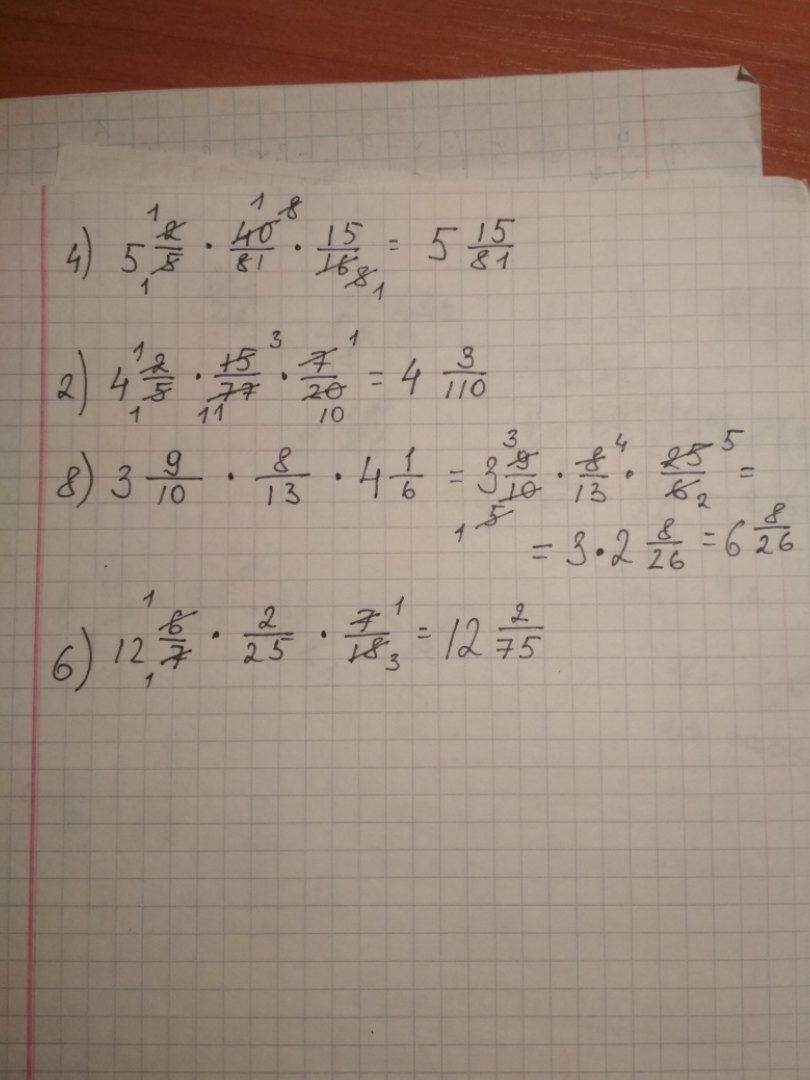 4) 5 2/5 · 40/81 · 15/16 = 5 15/81
2) 4 2/5 · 15/77 · 7/20 = 4 3/110
8) 3 9/10 · 8/13 · 4 1/6 = 3 9/10 · 8/13 · 25/6 =
= 3 · 2 8/26 = 6 8/26
6) 12 6/7 · 2/25 · 7/18 = 12 2/75